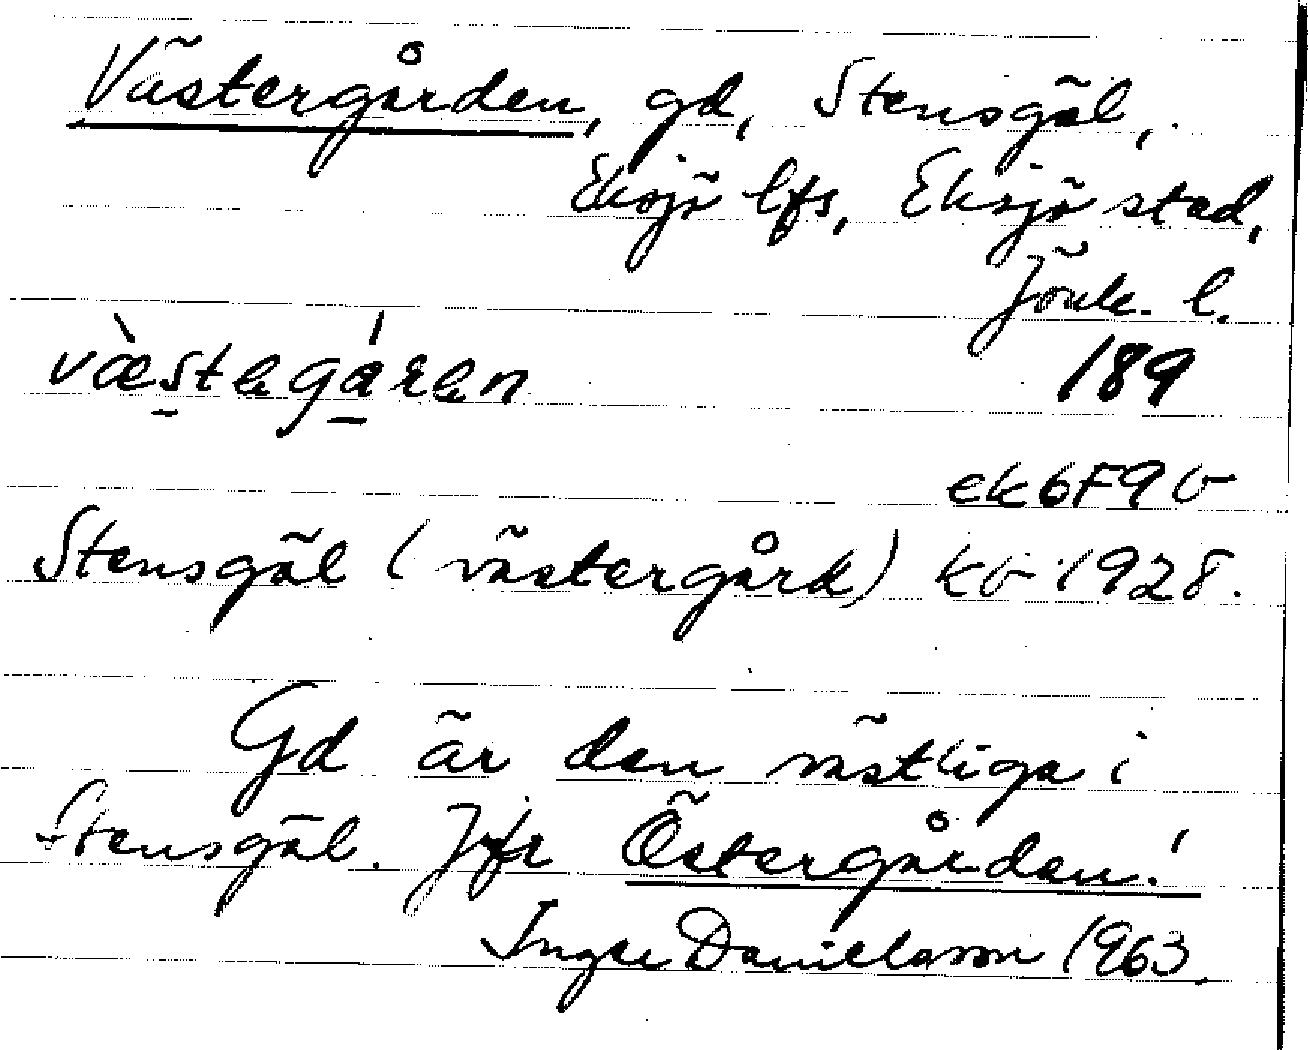 Västergården, gd, Stensgäl,
Eksjö lfs, Eksjö stad,
Jönk. l.
189
ek 6F9b
Stensgäl (västergård) kb 1928.
Gd är den västliga i
Stensgäl. Jfr Östergården!
Inger Danielsson 1963.